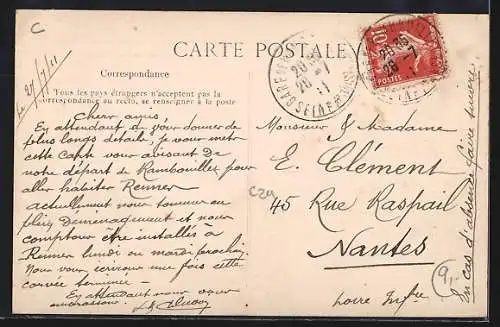 C
Le 27/7/11
CARTE POSTALE
Correspondance
Tous les pays étrangers n'acceptent pas la
correspondance au recto, se renseigner à la poste
Chers amis,
En attendant de vous donner de
plus longs détails, je vous mets
cette carte vous avisant de
notre départ de Rambouillet pour
aller habiter Rennes
actuellement nous sommes en
plein Déménagement et nous
comptons être installés à
Rennes lundi ou mardi prochain
Nous vous écrirons une fois cette
corvée terminée -
En attendant nous vous
embrassons.
GARE DE
SEINE-ET-OISE
20
11
10
POSTES
28-7
Monsieur & Madame
E. Clément
C24
45 Rue Raspail
Nantes
Loire Infre
9,-
En cas d'absence faire suivre